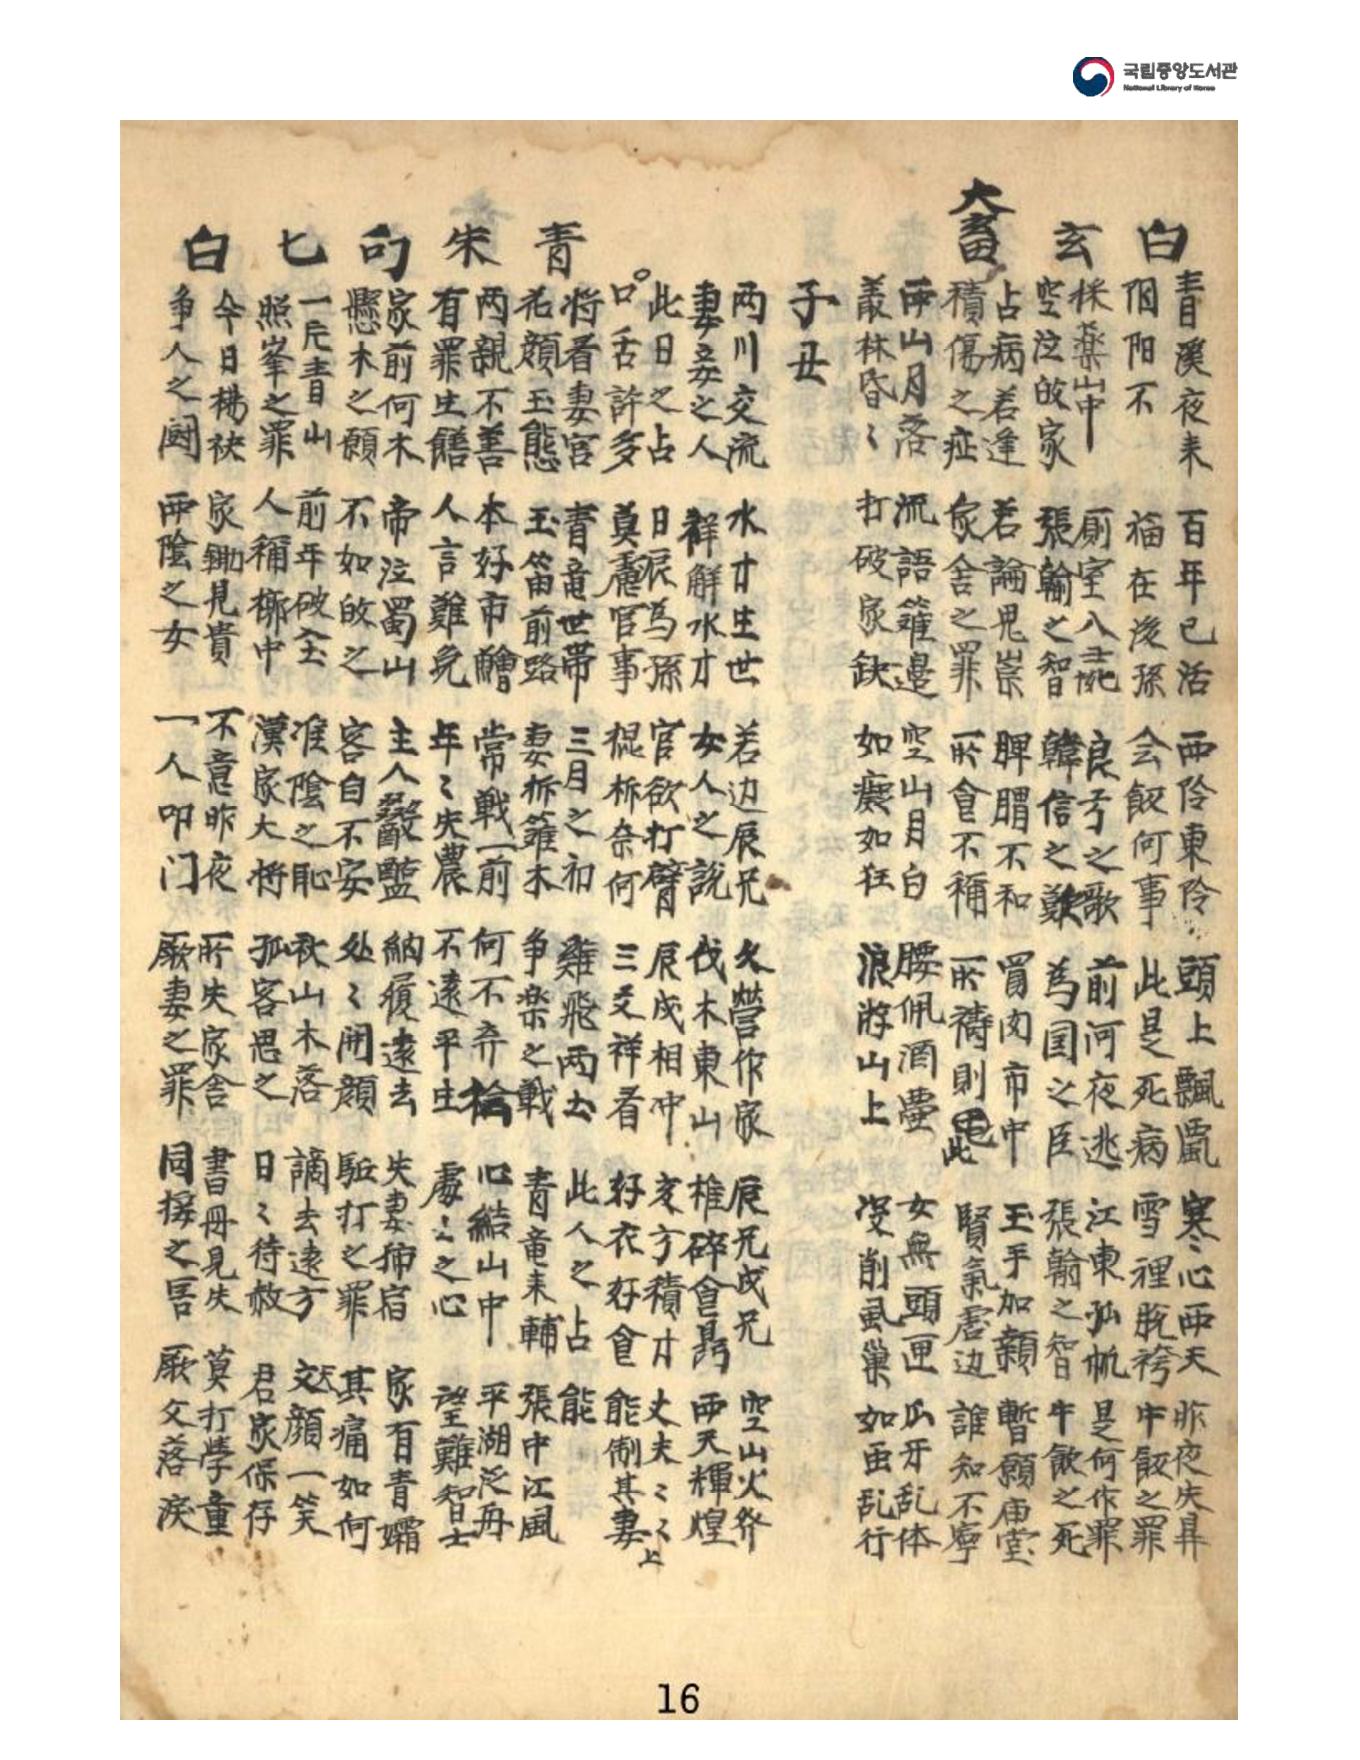 국립중앙도서관
National Library of Korea
白
靑溪夜来 百年已活 西伶東伶 頭上飄 寒心雨天 昨夜失
阳不 福在後孫 会飮何事 此是死病 雪裡脫袴 中飮之罪
玄
採藥山中 厠室八 良子之歌 前河夜逃 江東孤帆 是何作罪
空泣的家 張翰之智 韓信之難 為国之臣 張翰之智 牛飮之死
占病若逢 若論鬼崇 脾胃不和 買肉市中 玉手加額 暫願庙堂
大畜
積傷之症 家舍之罪 所食不稱 所禱則 賢氣虛边 誰知不寧
雨山月落 流語籬邊 空山月白 腰佩酒壺 女無頭匣 瓜牙乱体
叢林昏〻 打破家缺 如癡如狂 浪游山上 没削風巢 如雨乱行
子丑
两川交流 水才生世 若边辰兄 久營作家 辰兄戌兄 空山火
妻妾之人 祥解水才 女人之說 伐木東山 椎碎食 雨天輝煌
此日之占 日辰為孫 官欲打臂 辰戌相冲 方積才 丈夫〻〻上
口舌許多 莫慮官事 棍柝奈何 三爻祥看 好衣好食 能制其妻
靑
将看妻宮 青竜世帶 三月之初 雞飛两 此人之占 能
花顏玉態 玉笛前路 妻折籬木 争楽之戰 青竜来輔 張中江風
朱
两親不善 本好市 常戰一前 何不弃 心結山中 平湖泛舟
有罪生 人言難免 年〻失農 不遠平生 處〻之心 望難智士
句
家前何木 帝泣蜀山 主人 監 納履遠去 失妻 宿 家有青孀
懸木之願 不如的之 客自不安 处〻開顏 駈打之罪 其痛如何
匕
一片青山 前年破 淮陰之恥 秋山木落 謫去遠方 顏一笑
照峯之罪 人稱 中 漢家大将 孤客思之 日〻待赦 君家保存
白
今日楊袂 家 見貴 不意昨夜 所失家舍 書冊見失 莫打學童
争人之 两陰之女 一人叩门 厥妻之罪 同接之害 厥父落淚
16